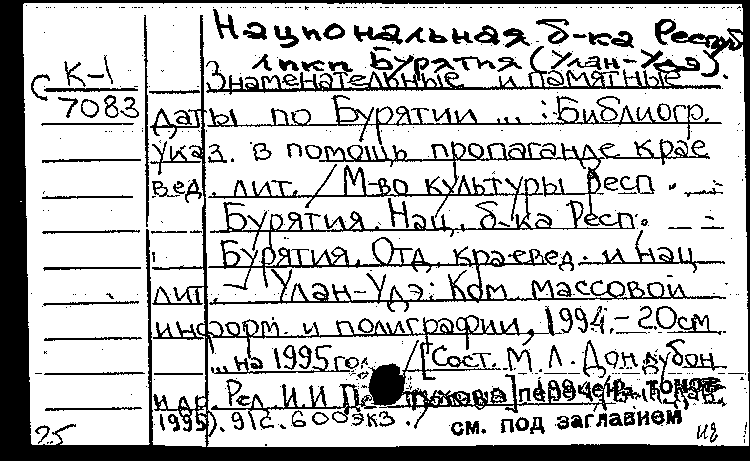 Национальная б-ка Респуб
лики Бурятия (Улан-Удэ).
С К-1
7083
Знаменательные и памятные
даты по Бурятии ... : Библиогр.
указ. в помощь пропаганде крае
вед. лит. / М-во культуры Респ.
Бурятия. Нац. б-ка Респ.
Бурятия. Отд. краевед. и нац
лит. - Улан-Удэ: Ком. массовой
информ. и полиграфии, 1994. - 20см
... на 1995 го / [Сост. М.Л. Дондубон
и др. Ред. И.И. 1994
1995). 91с. 600экз.
см. под заглавием
25